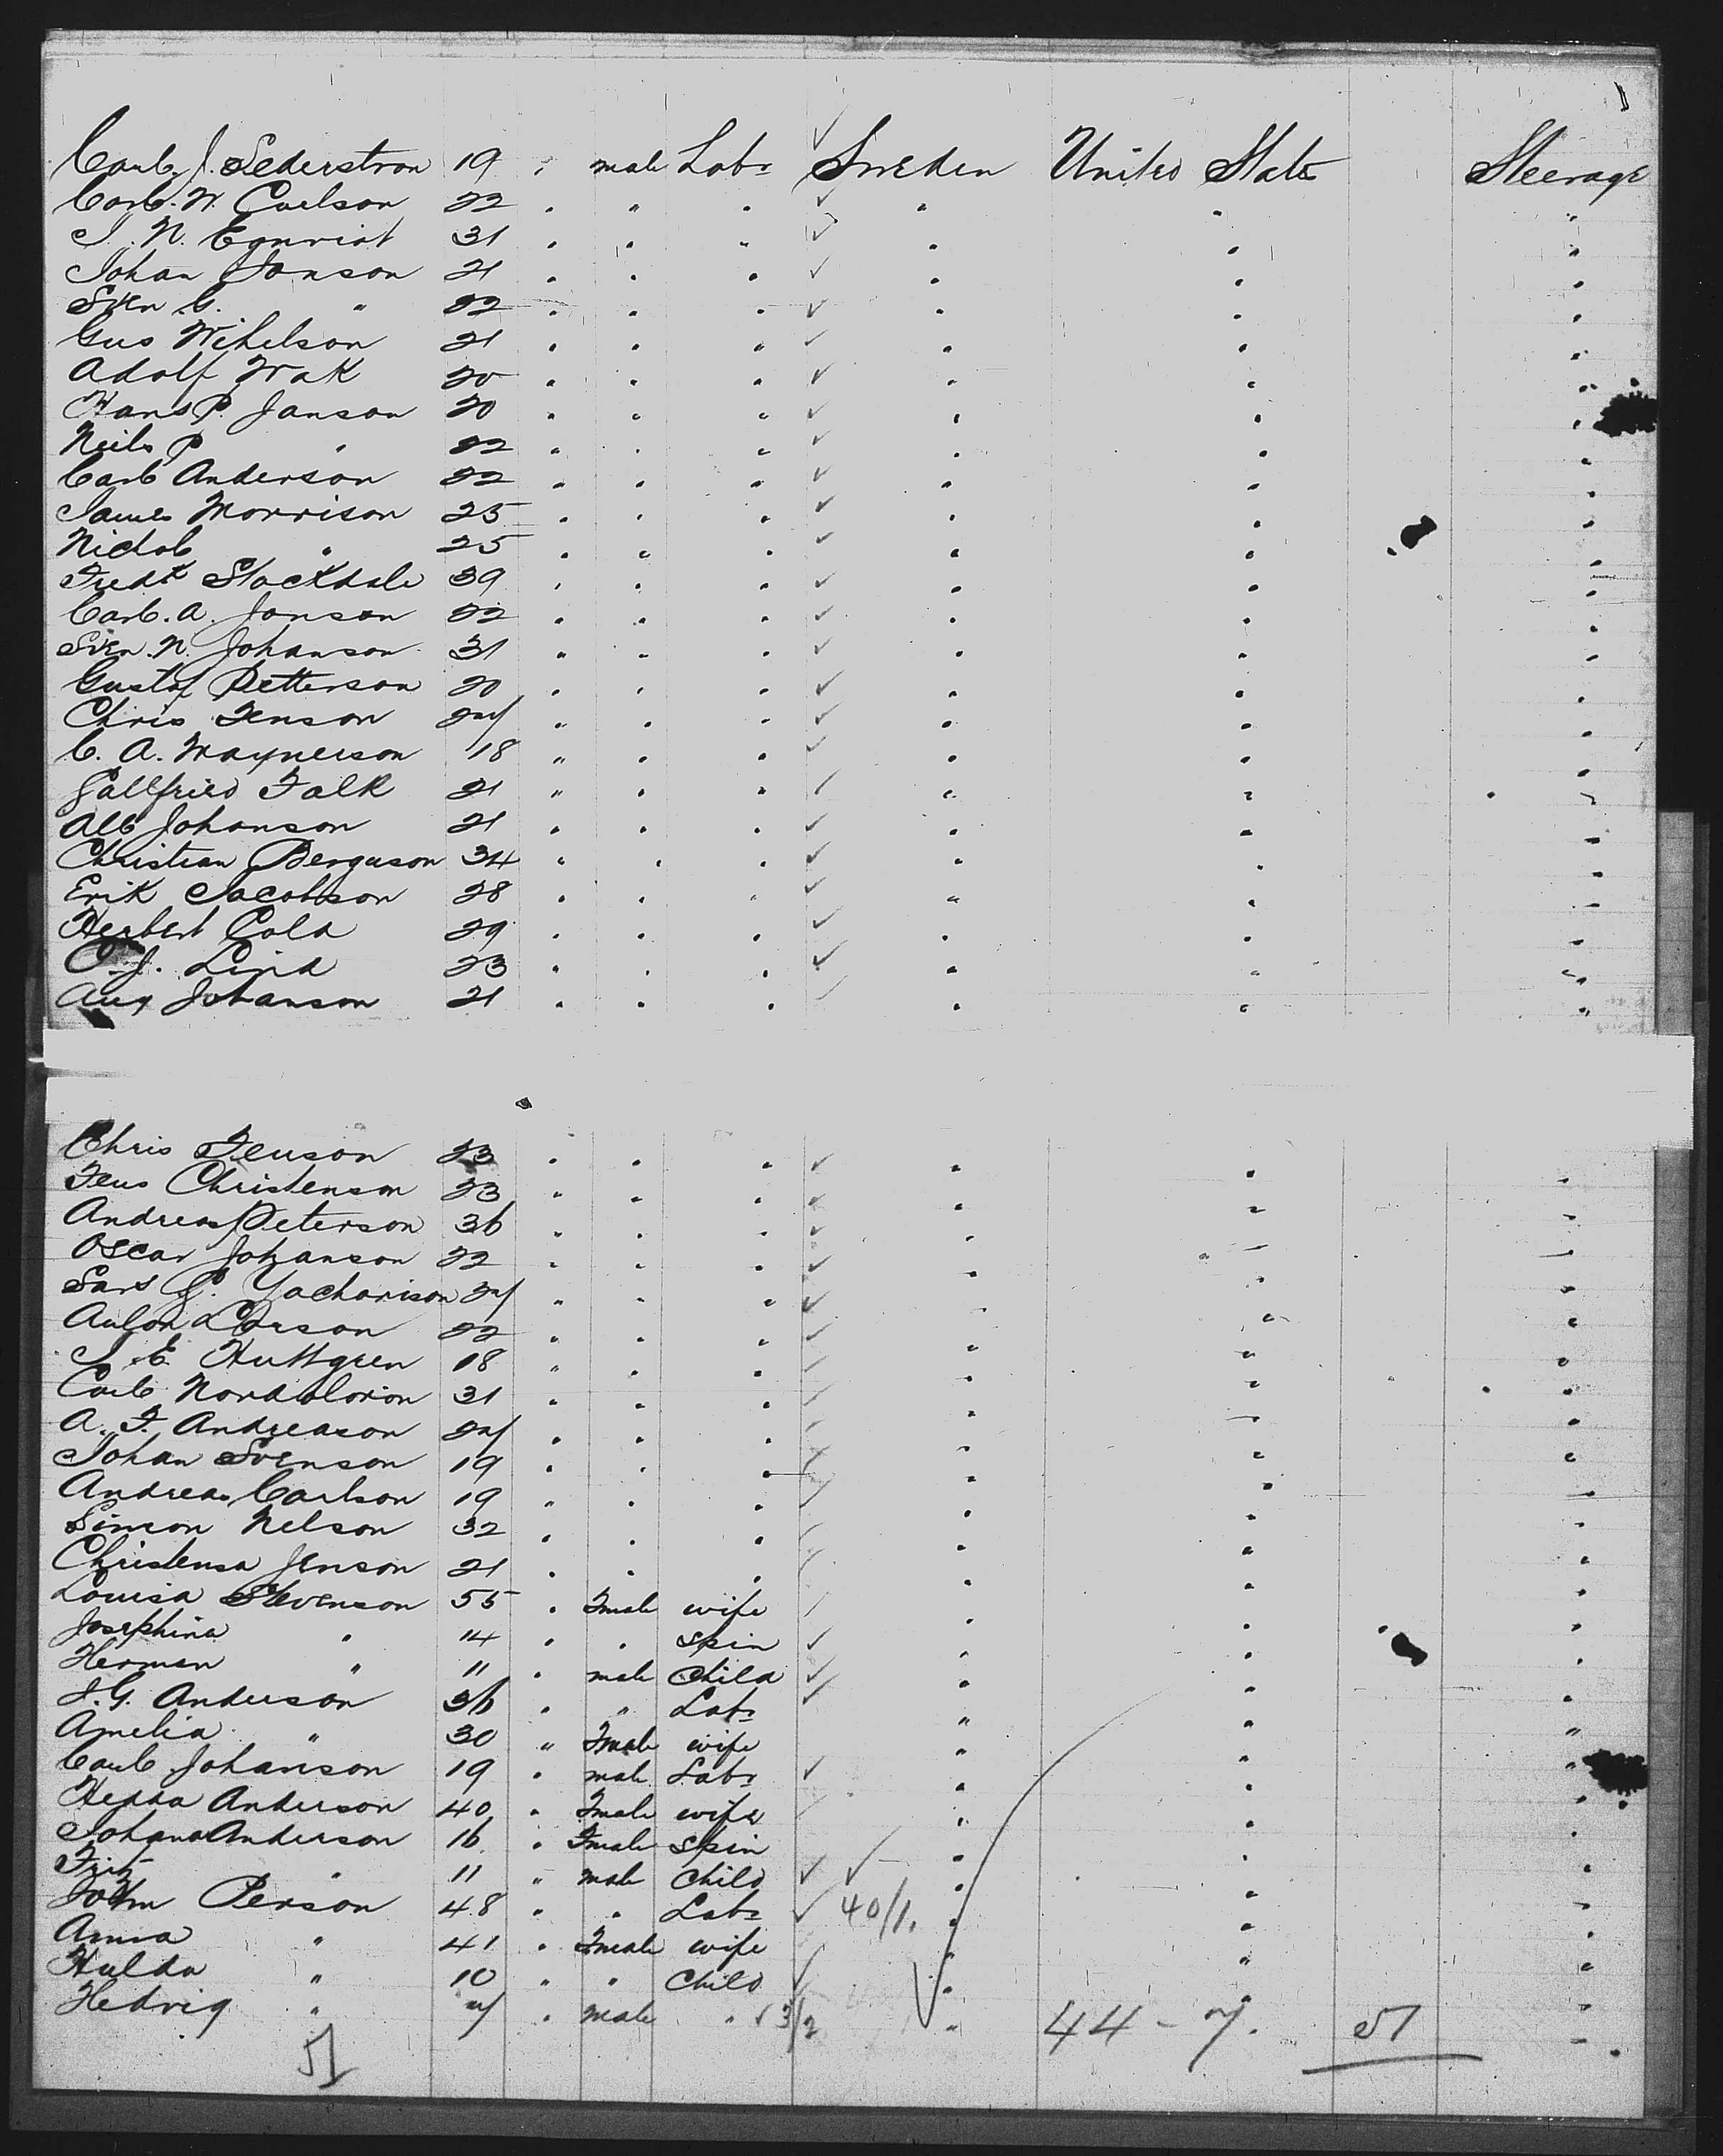 Carl J. Sederstron 19 " male Labr Sweden United States Steerage
Carl. W. Carlson 22 " " " " " "
J. N. Egnvist 31 " " " " " "
Johan Jonson 21 " " " " " "
Sven G. " 22 " " " " " "
Gus Wihelson 21 " " " " " "
Adolf Wak 20 " " " " " "
Hans P. Janson 20 " " " " " "
Neils P " 22 " " " " " "
Carl Anderson 22 " " " " " "
James Morrison 25 " " " " " "
Nichol " 25 " " " " " "
Fredk Stockdale 39 " " " " " "
Carl. A. Jonson 22 " " " " " "
Sven. N. Johanson 31 " " " " " "
Gustaf Petterson 20 " " " " " "
Chris Jenson 24 " " " " " "
C. A. Maynerson 18 " " " " " "
Gallfried Falk 21 " " " " " "
Alb Johanson 21 " " " " " "
Christian Berguson 34 " " " " " "
Erik Jacobson 28 " " " " " "
Herbert Cola 29 " " " " " "
C. J. Lind 23 " " " " " "
Aug Johanson 21 " " " " " "
Chris Jenson 23 " " " " " "
Jens Christenson 23 " " " " " "
Andreas Peterson 36 " " " " " "
Oscar Johanson 22 " " " " " "
Lars P. Yacharison 24 " " " " " "
Anton Larson 22 " " " " " "
J. E. Huttgren 18 " " " " " "
Carl 31 " " " " " "
A. F. Andreason 24 " " " " " "
Johan Svenson 19 " " " " " "
Andreas Carlson 19 " " " " " "
Simon Nelson 32 " " " " " "
Christensa Jenson 21 " " " " " "
Louisa Stevenson 55 " Fmale wife " " "
Josephina " 14 " " Spin " " "
Herman " 11 " male Child " " "
J. G. Anderson 36 " " Labr " " "
Amelia " 30 " Fmale wife " " "
Carl Johanson 19 " male Labr " " "
Hedda Anderson 40 " Fmale wife " " "
Johana Anderson 16 " Fmale Spin " " "
Fritz " 11 " male Child " " "
John Person 48 " " Labr 40/1. " " "
Anna " 41 " Fmale wife " " "
Hulda " 10 " " Child " " "
Hedvig " 4 " male " 3/2 " "
51 44 - 7. 51